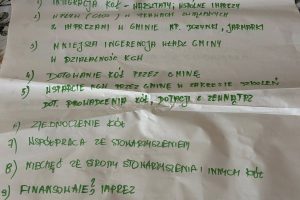 1) INTEGRACJA KÓŁ - WARSZTATY, WSPÓLNE IMPREZY
2) UDZIAŁ W
Z IMPREZAMI W GMINIE NP. DOŻYNKI, JARMARKI
3) MNIEJSZA INGERENCJA WŁADZ GMINY
W DZIAŁALNOŚĆ KGW
4) DOTOWANIE KÓŁ PRZEZ GMINĘ
5) WSPARCIE KGW PRZEZ GMINĘ W ZAKRESIE SZKOLEŃ
DOT. PROWADZENIA KÓŁ, DOTACJI Z ZEWNĄTRZ
6) ZJEDNOCZENIE KÓŁ
7) WSPÓŁPRACA ZE STOWARZYSZENIEM
8) NIECHĘĆ ZE STRONY STOWARZYSZENIA I INNYCH KÓŁ
9) FINANSOWANIE? IMPREZ